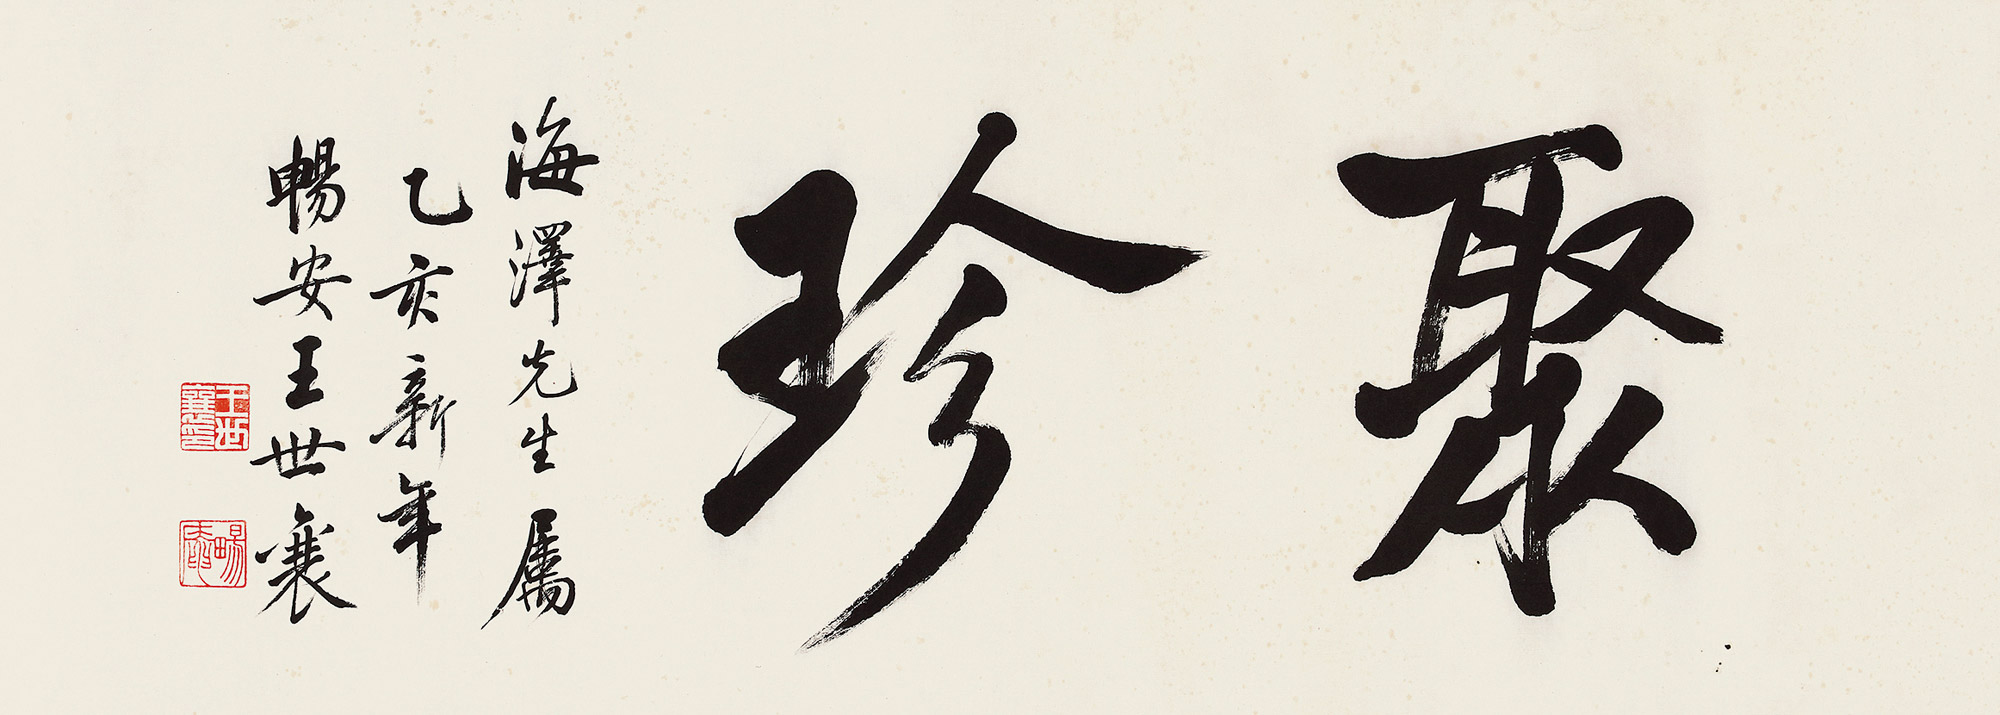 聚珍
海澤先生屬
乙亥新年
暢安王世襄
王世襄印
暢安